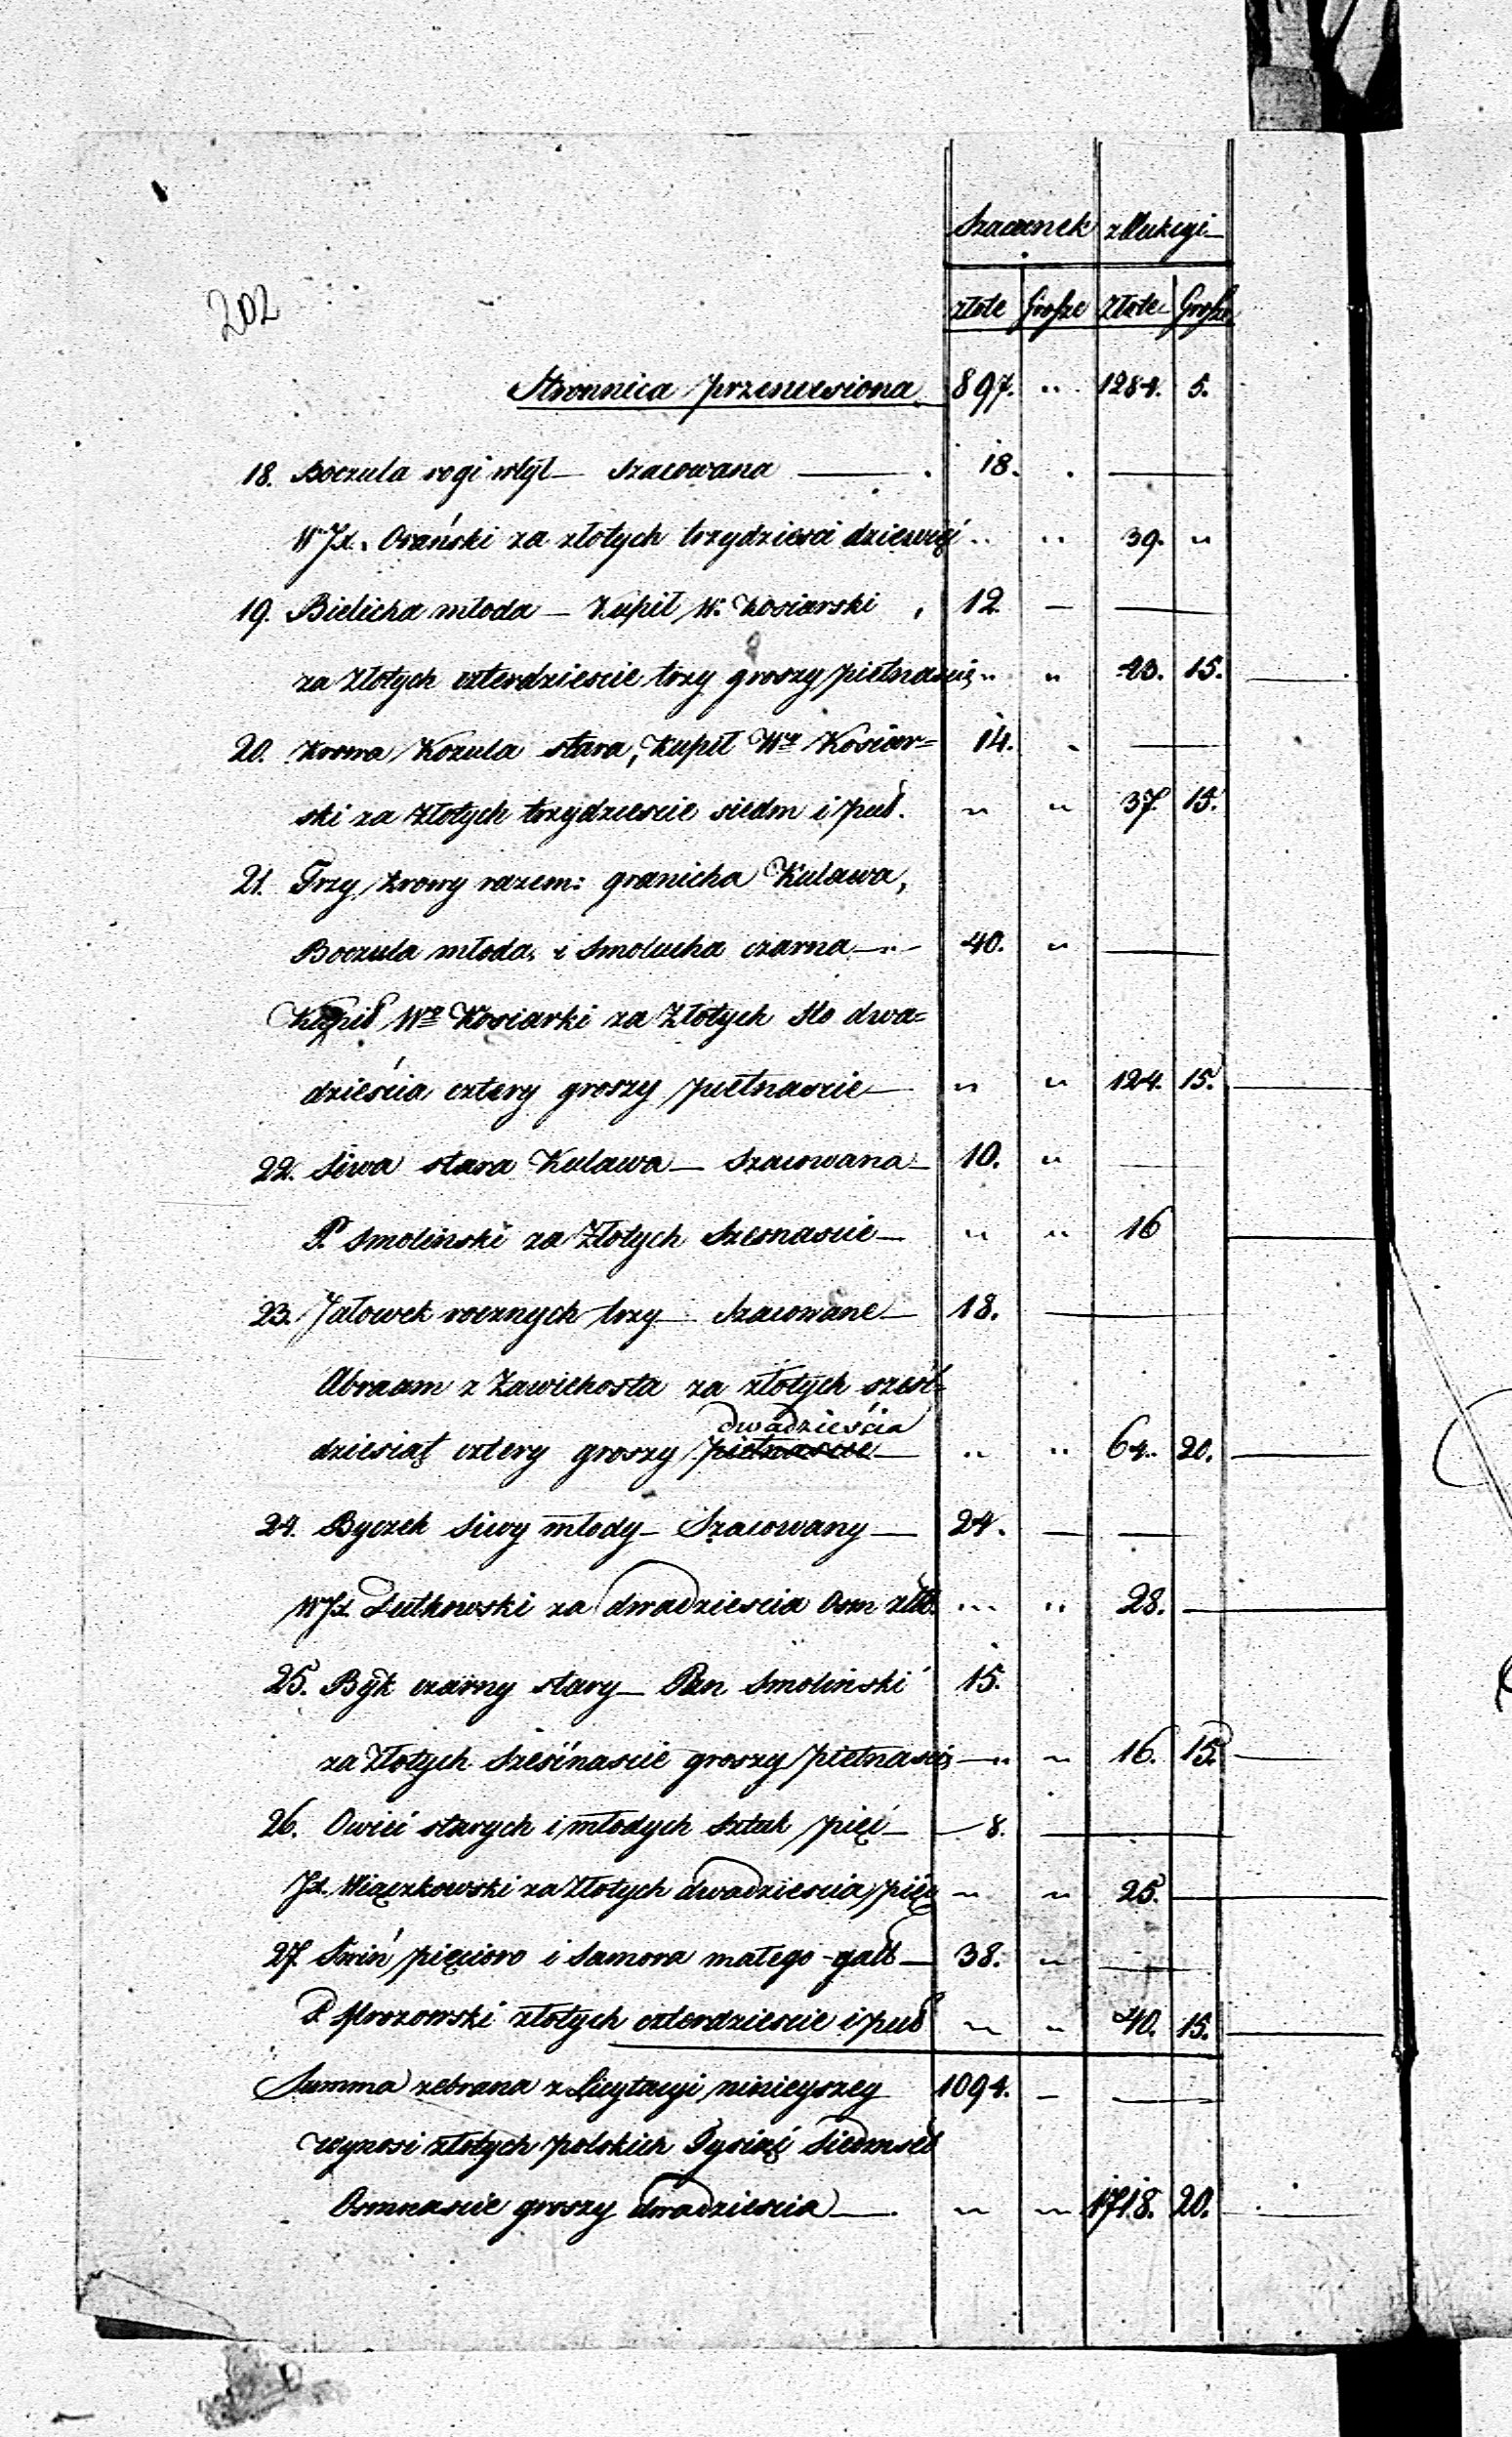 Szacunek z Licitacyi
złote Grosze Złote Grosze
202
Stronnica przeniesiona 897. „ 1284. 5.
18. Boczula rogi wtył — Szacowana — 18. —
WJX. Osański za złotych trzydziesci dziewięć „ „ 39. „
19. Bielicha młoda — Kupił W. Kosiarski 12 — —
za Złotych czterdziescie trzy groszy pietnascie „ „ 43. 15.
20. Krowa Kozula stara, kupił Wy Kosiar= 14. —
ski za Złotych trzydziescie siedm i puł. „ „ 37. 15.
21. Trzy krowy razem: granicha Kulawa,
Boczula młoda, i Smolucha czarna — 40. „ —
Kupił Wy Kosiarki za Złotych Sto dwa=
dzieścia cztery groszy pietnascie — „ „ 124. 15.
22. Siwa stara Kulawa — Szacowana — 10. „ —
P. Smolinski za Złotych Szesnascie — „ „ 16
23. Jałowek rocznych trzy — Szacowane — 18. —
Abraam z Zawichosta za złotych sześć-
dwadzieścia
dziesiąt cztery groszy pietnascie — „ „ 64. 20.
24. Byczek Siwy młody — Szacowany — 24. — —
WJX. Lutkowski za dwadziescia Osm złot. „ „ 28. —
25. Byk czarny stary — Pan Smoliński 15.
za Złotych Sześćnascie groszy pietnascie — „ „ 16. 15.
26. Owiec starych i młodych Sztuk pięć — 8. —
JX. Wiączkowski za Złotych dwadziescia pięć „ „ 25. —
27. Swiń pięcioro i Samora małego — 38. „ —
P. Mrozowski złotych czterdziescie i puł „ „ 40. 15.
Summa zebrana z Licytacyi ninieyszey 1094. — —
wynosi złotych polskich Tysiąc Siedmset
Osmnascie groszy dwadziescia — „ „ 1718. 20.